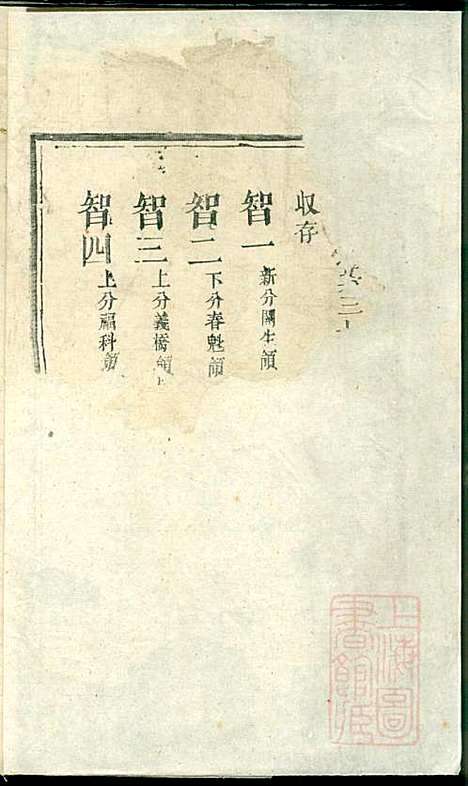 收存
智一 新分關生領
智二 下分春魁領
智三 上分義橋領
智四 上分福科領
上海圖書館藏